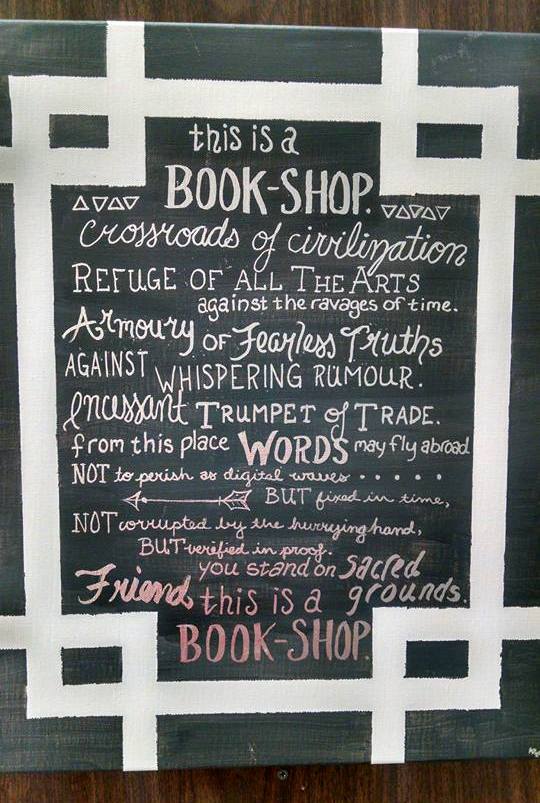 this is a
BOOK-SHOP.
crossroads of civilization
REFUGE OF ALL THE ARTS
against the ravages of time.
Armoury OF Fearless Truths
AGAINST WHISPERING RUMOUR.
incessant TRUMPET of TRADE.
from this place WORDS may fly abroad
NOT to perish as digital waves . . . . .
BUT fixed in time,
NOT corrupted by the hurrying hand,
BUT verified in proof.
Friend you stand on sacred grounds.
this is a
BOOK-SHOP.